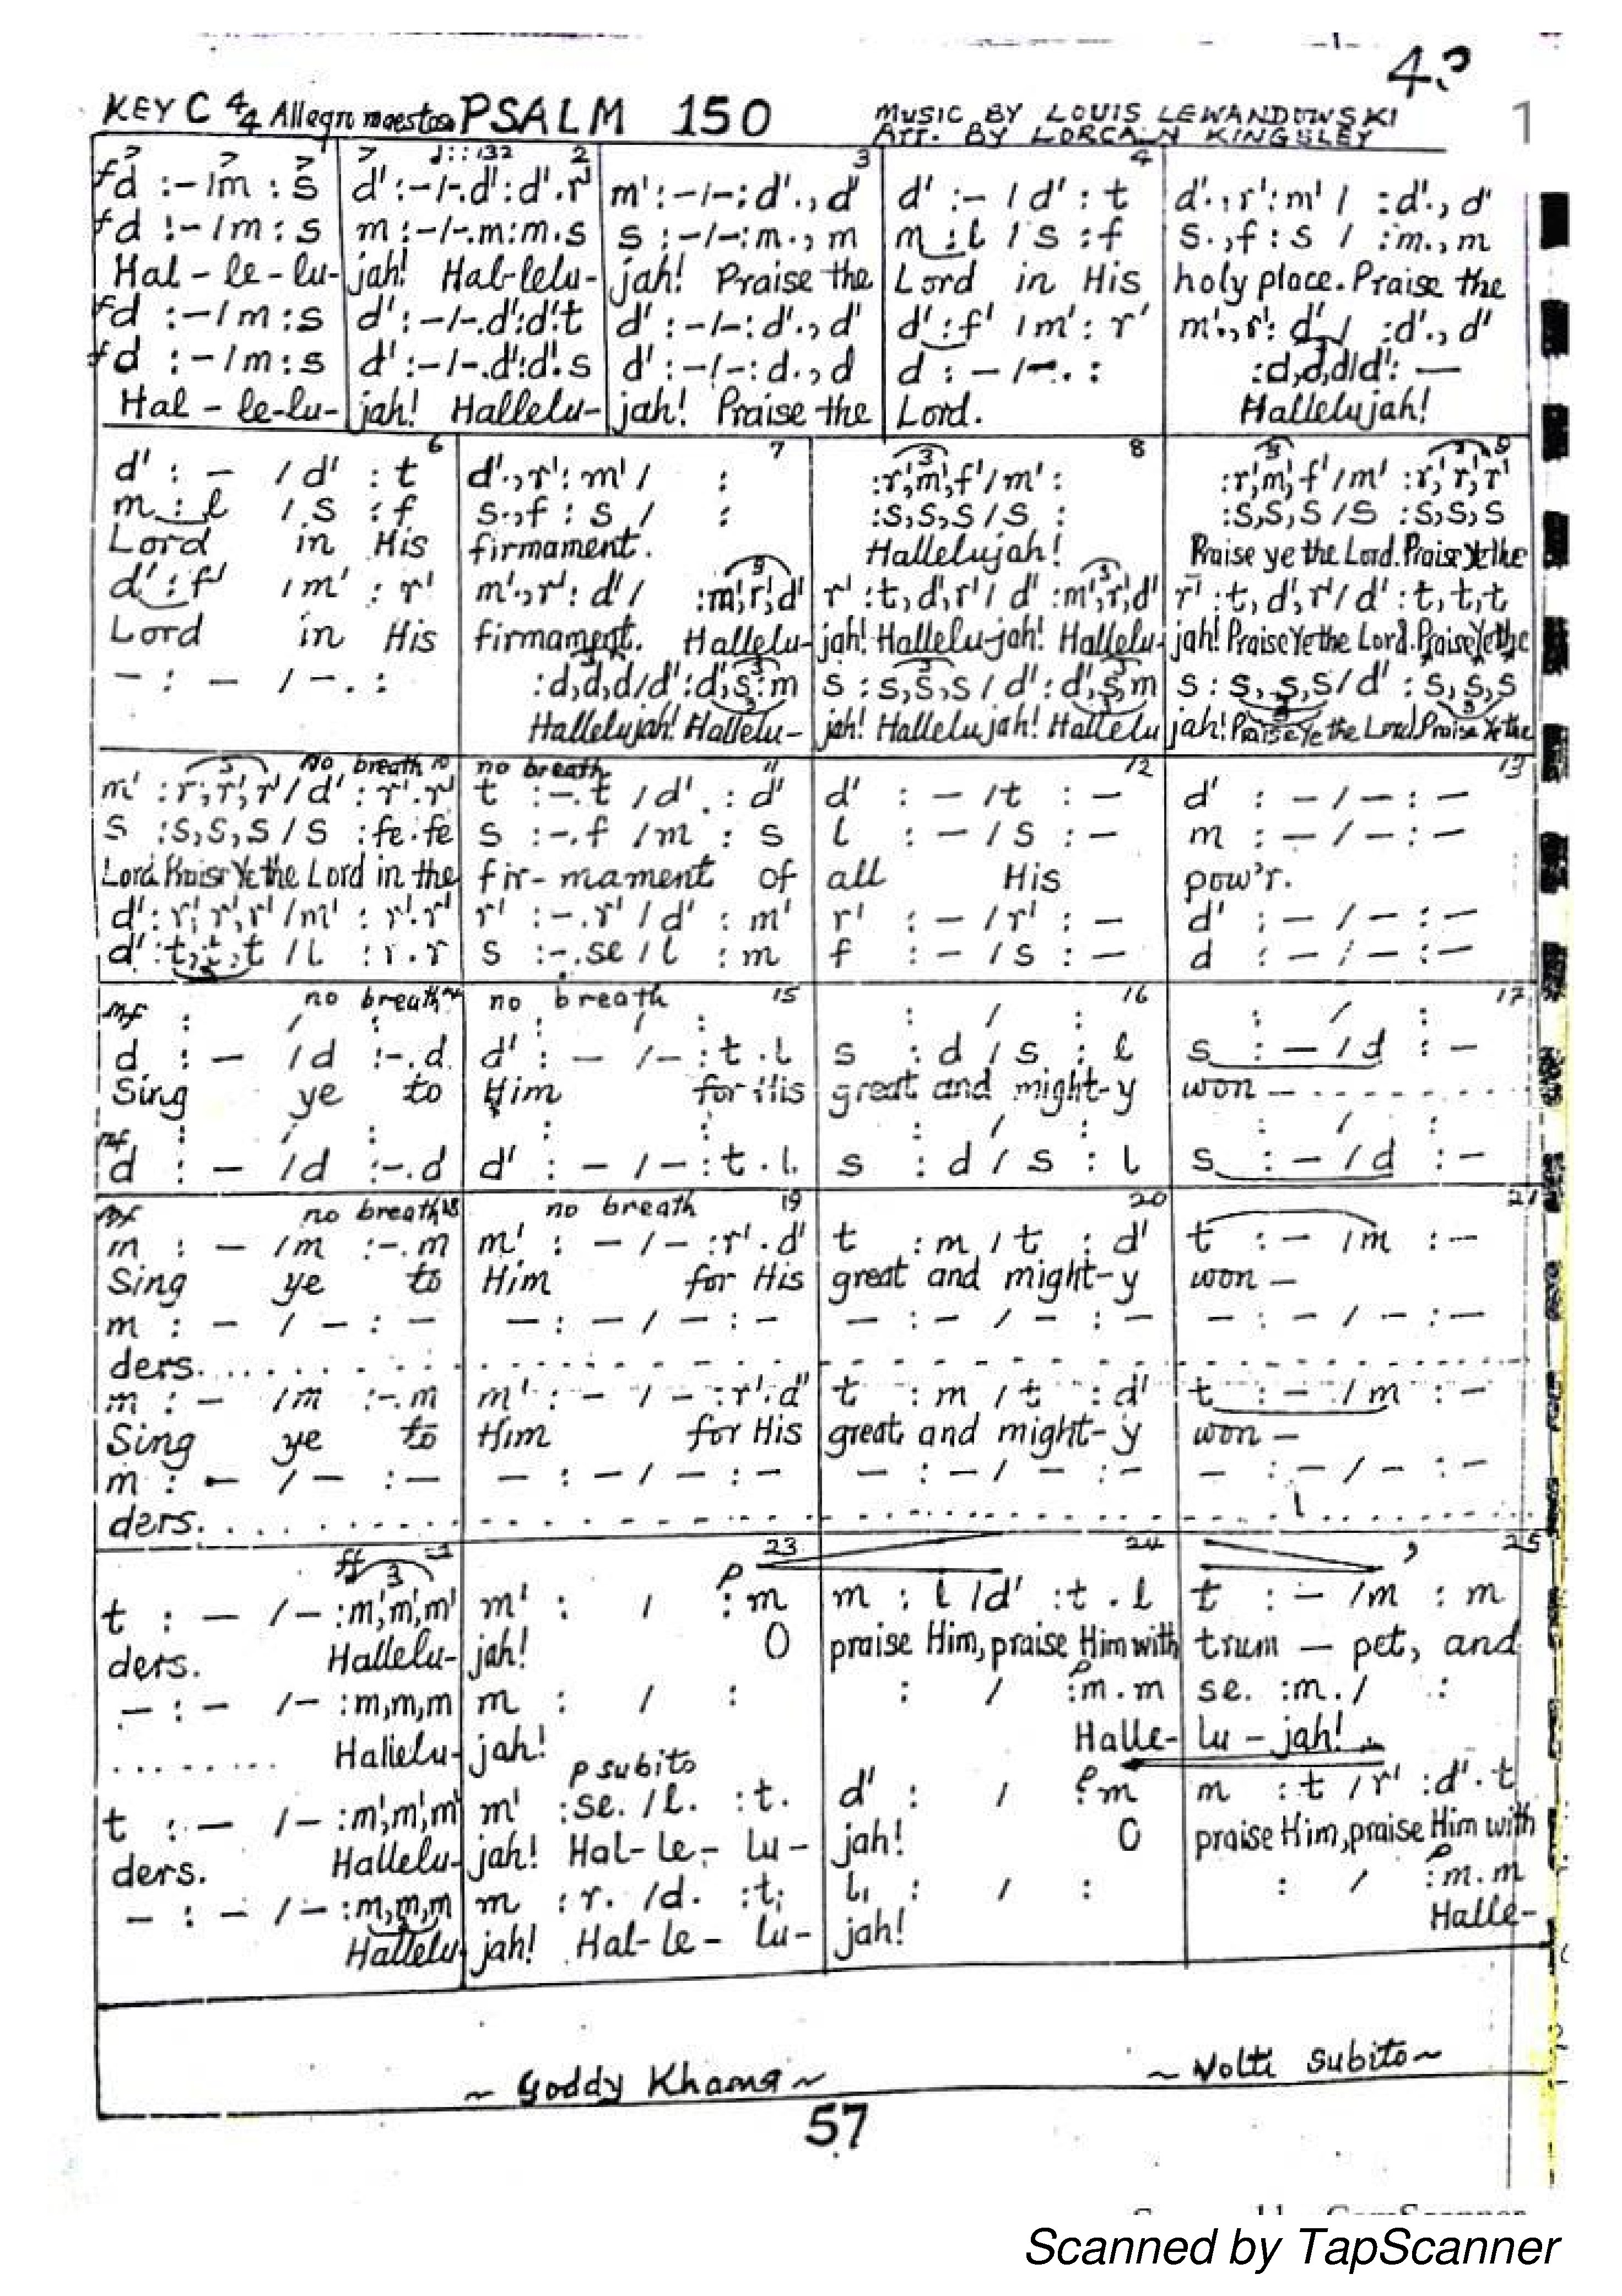 43
KEY C 4/4 Allegro maestoso PSALM 150 MUSIC BY LOUIS LEWANDOWSKI
Arr. BY LORCAIN KINGSLEY
1
> > > > ♩::132 2 3 4
f d :-/m : s d' :-/-.d' : d'.r' m' :-/-: d'., d' d' :- / d' : t d'., r' : m' / : d'., d'
f d :-/m : s m :-/-.m : m.s s :-/-: m., m m : l / s : f s., f : s / : m., m
Hal-le-lu- jah! Hal-lelu- jah! Praise the Lord in His holy place. Praise the
f d :-/m : s d' :-/-.d' : d'.t d' :-/-: d'., d' d' : f' / m' : r' m'., r' : d' / : d'., d'
f d :-/m : s d' :-/-.d' : d'.s d' :-/-: d., d d :-/-. : : d,d,d/d' : —
Hal-le-lu- jah! Hallelu- jah! Praise the Lord. Hallelujah!
6 7 8 9
d' : - / d' : t d'., r' : m' / : : r',m',f'/m' : : r',m',f'/m' : r',r',r'
m : l / s : f s., f : s / : : s,s,s/s : : s,s,s/s : s,s,s
Lord in His firmament. Hallelujah! Praise ye the Lord. Praise Ye the
d' : f' / m' : r' m'., r' : d' / : m',r',d' r' : t,d',r'/d' : m',r',d' r' : t,d',r'/d' : t,t,t
Lord in His firmament. Hallelu- jah! Hallelu-jah! Hallelu- jah! Praise Ye the Lord. Praise Ye the
- : - / -. : : d,d,d/d' : d',s:m s : s,s,s/d' : d',s,m s : s,s,s/d' : s,s,s
Hallelujah! Hallelu- jah! Hallelujah! Hallelu jah! Praise Ye the Lord Praise Ye the
No breath 10 no breath 11 12 13
m' : r',r',r'/d' : r'.r' t :-.t / d'. : d' d' : - / t : - d' : - / - : -
s : s,s,s/s : fe.fe s :-.f / m : s l : - / s : - m : - / - : -
Lord Praise Ye the Lord in the fir-mament of all His pow'r.
d' : r',r',r'/m' : r'.r' r' :-.r' / d' : m' r' : - / r' : - d' : - / - : -
d' : t,t,t/l : r.r s :-.se / l : m f : - / s : - d : - / - : -
mf no breath 14 no breath 15 16 17
: / : : / : : / : : / :
d : - / d :-.d d' : - / - : t.l s : d / s : l s : - / d : -
Sing ye to Him for His great and might-y won -
mf : / : : : : / : : / :
d : - / d :-.d d' : - / - : t.l. s : d / s : l s : - / d : -
mf no breath 18 no breath 19 20 21
m : - / m :-.m m' : - / - : r'.d' t : m / t : d' t : - / m : -
Sing ye to Him for His great and might-y won -
m : - / - : - - : - / - : - - : - / - : - - : - / - : -
ders.
m : - / m :-.m m' : - / - : r'.d' t : m / t : d' t : - / m : -
Sing ye to Him for His great and might-y won -
m : - / - : - - : - / - : - - : - / - : - - : - / - : -
ders.
ff 3 23 24 25
t : - / - : m',m',m' m' : / p : m m : l / d' : t . l t : - / m : m
ders. Hallelu- jah! O praise Him, praise Him with trum - pet, and
- : - / - : m,m,m m : / : : / p : m.m se. : m. / :
Hallelu- jah! Halle- lu - jah!
p subito
t : - / - : m',m',m' m' : se. / l. : t. d' : / p : m m : t / r' : d'.t
ders. Hallelu- jah! Hal-le-lu- jah! O praise Him, praise Him with
- : - / - : m,m,m m : r. / d. : t, l, : / : : / p : m.m
Hallelu jah! Hal-le-lu- jah! Halle-
~ Goddy Khama ~ ~ Volti Subito ~
57
Scanned by TapScanner